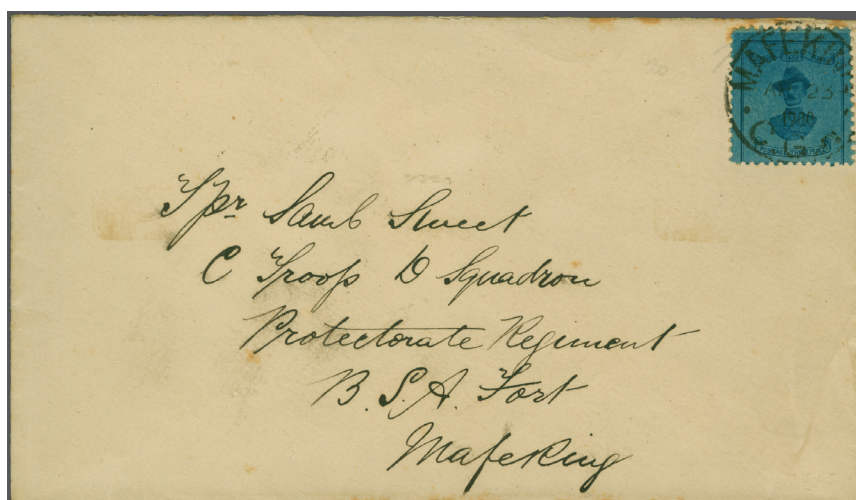 MAFEKING
AP 23
1900
C.G.H.
Tpr Samb Street
C Troop D Squadron
Protectorate Regiment
B.S.A. Fort
Mafeking